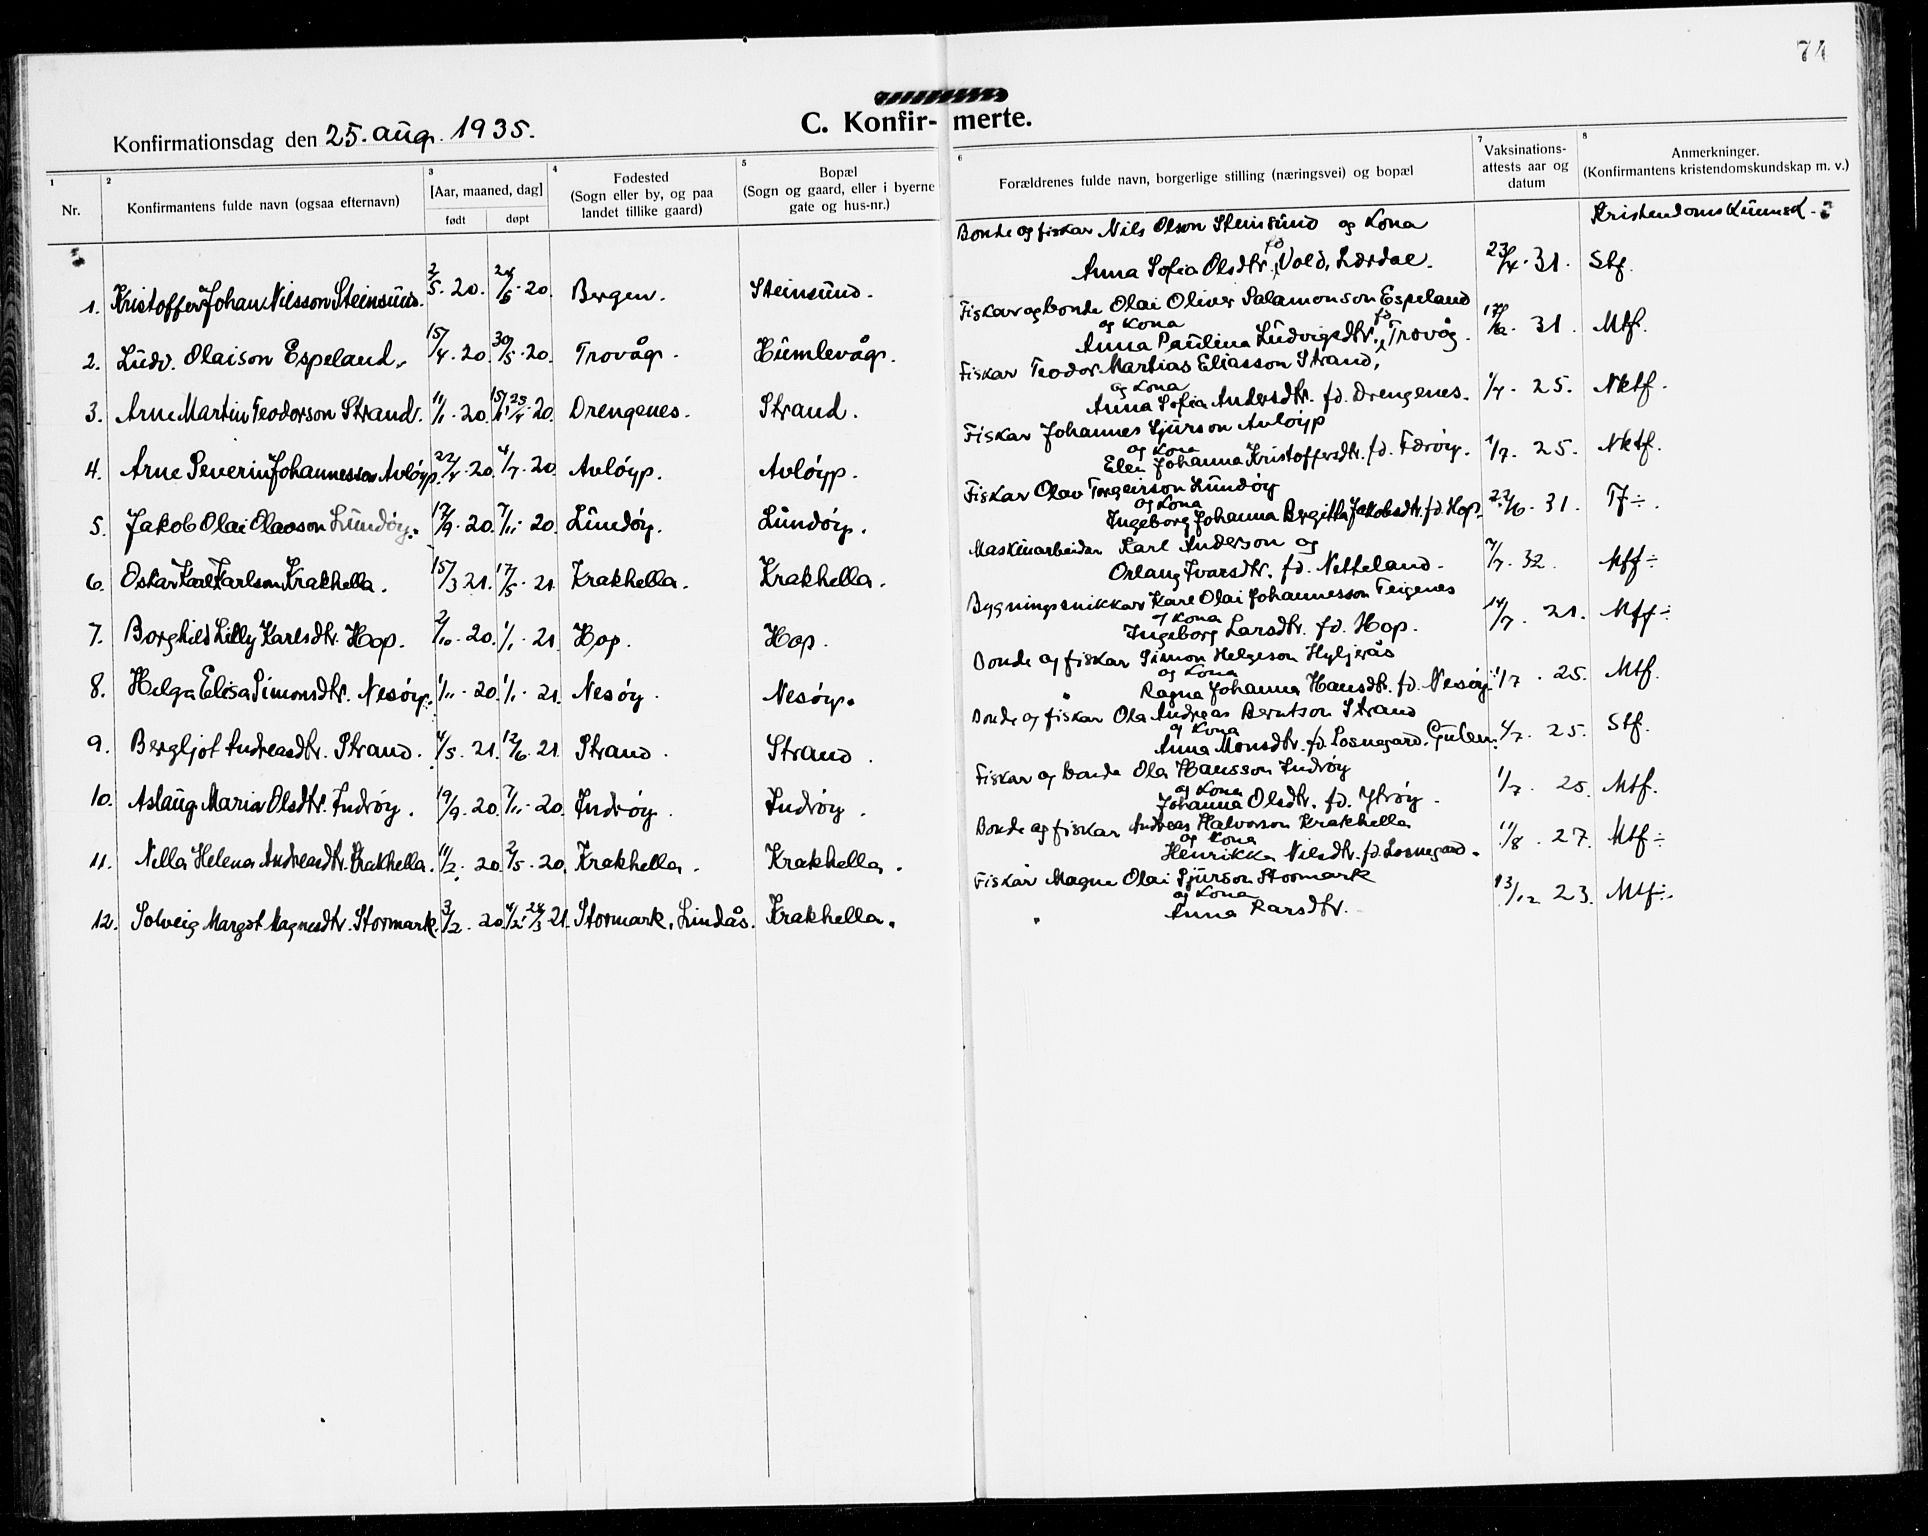 74
C. Konfir- merte.
Konfirmationsdag den 25. aug. 1935.
1 2 3 4 5 6 7 8
Nr.
Konfirmantens fulde navn (ogsaa efternavn)
[Aar, maaned, dag]
født døpt
Fødested
(Sogn eller by, og paa
landet tillike gaard)
Bopæl
(Sogn og gaard, eller i byerne
gate og hus-nr.)
Forældrenes fulde navn, borgerlige stilling (næringsvei) og bopæl
Vaksinations-
attests aar og
datum
Anmerkninger.
(Konfirmantens kristendomskundskap m. v.)
Kristendomskunnsk.
Bonde og fiskar Nils Olson Steinsund og kona
Anna Sofia Olsdtr. fd. Vold, Lærdal. 23/4. 31. Stf.
1. Kristoffer Johan Nilsson Steinsund. 2/5. 20. 24/6. 20. Bergen. Steinsund.
Fiskar og bonde Olai Oliver Salamonson Espeland
og kona
Anna Paulina Ludvigsdtr. fd. Trovåg. 31. Mtf.
2. Ludv. Olaison Espeland. 15/4. 20. 30/5. 20. Trovåg. Humlevåg.
Fiskar Teodor Martias Eliasson Strand,
og kona
Anna Sofia Andersdtr. fd. Drengenes. 1/7. 25. Nktf.
3. Arne Martin Teodorson Strand. 11/1. 20. 25/4. 20. Drengenes. Strand.
Fiskar Johannes Sjurson Avløyp
og kona
Elen Johanna Kristoffersdtr. fd. Færøy. 1/7. 25. Nktf.
4. Arne Severin Johannesson Avløyp. 22/4. 20. 4/7. 20. Avløyp. Avløyp.
Fiskar Olav Torgeirson Lundøy
og kona
Ingeborg Johanna Bergitta Jakobsdtr. fd. Hop. 22/6. 31. Tf ÷.
5. Jakob Olai Olavson Lundøy. 17/9. 20. 7/11. 20. Lundøy. Lundøy.
Maskinarbeidar Karl Anderson og
Orlaug Ivarsdtr. fd. Netteland. 7/7. 32. Mtf ÷
6. Oskar Karl Karlson Krakhella. 15/3 21. 17/5. 21. Krakhella. Krakhella.
Bygningssnikkar Karl Olai Johannesson Teigenes
og kona
Ingeborg Larsdtr. fd. Hop. 14/7. 21. Mtf ÷
7. Borghild Lilly Karlsdtr. Hop. 2/10. 20. 1/1. 21. Hop. Hop.
Bonde og fiskar Simon Helgeson Hyljerås
og kona
" Ragna Johanna Hansdtr. fd. Nesøy. 1/7. 25. Mtf.
8. Helga Elisa Simonsdtr. Nesøy. 1/11. 20. 1/1. 21. Nesøy. Nesøy.
Bonde og fiskar Ola Andreas Berntson Strand
og kona
Anna Monsdtr. fd. Losnegard. Gulen. 4/7. 25. Stf.
9. Bergljot Andreasdtr. Strand. 4/5. 21. 12/6. 21. Strand. Strand.
Fiskar og bonde Ola Hansson Indrøy
og kona
Johanna Olsdtr. fd. Ytrøy. 1/7. 25. Mtf.
10. Aslaug Maria Olsdtr. Indrøy. 19/9. 20. 7/11. 20. Indrøy. Indrøy.
Bonde og fiskar Andreas Halvorson Krakhella
og kona
Henrikka Nilsdtr. fd. Losnegard. 11/8. 27. Mtf ÷
11. Nella Helena Andreasdtr. Krakhella. 11/2. 20. 2/5. 20. Krakhella. Krakhella.
Fiskar Magne Olai Sjurson Stormark
og kona
" Anna Larsdtr. 13/12 23. Mtf ÷.
12. Solveig Margot Magnesdtr. Stormark. 3/2. 20. 4/2. 24/3 21. Stormark, Lindås. Krakhella.